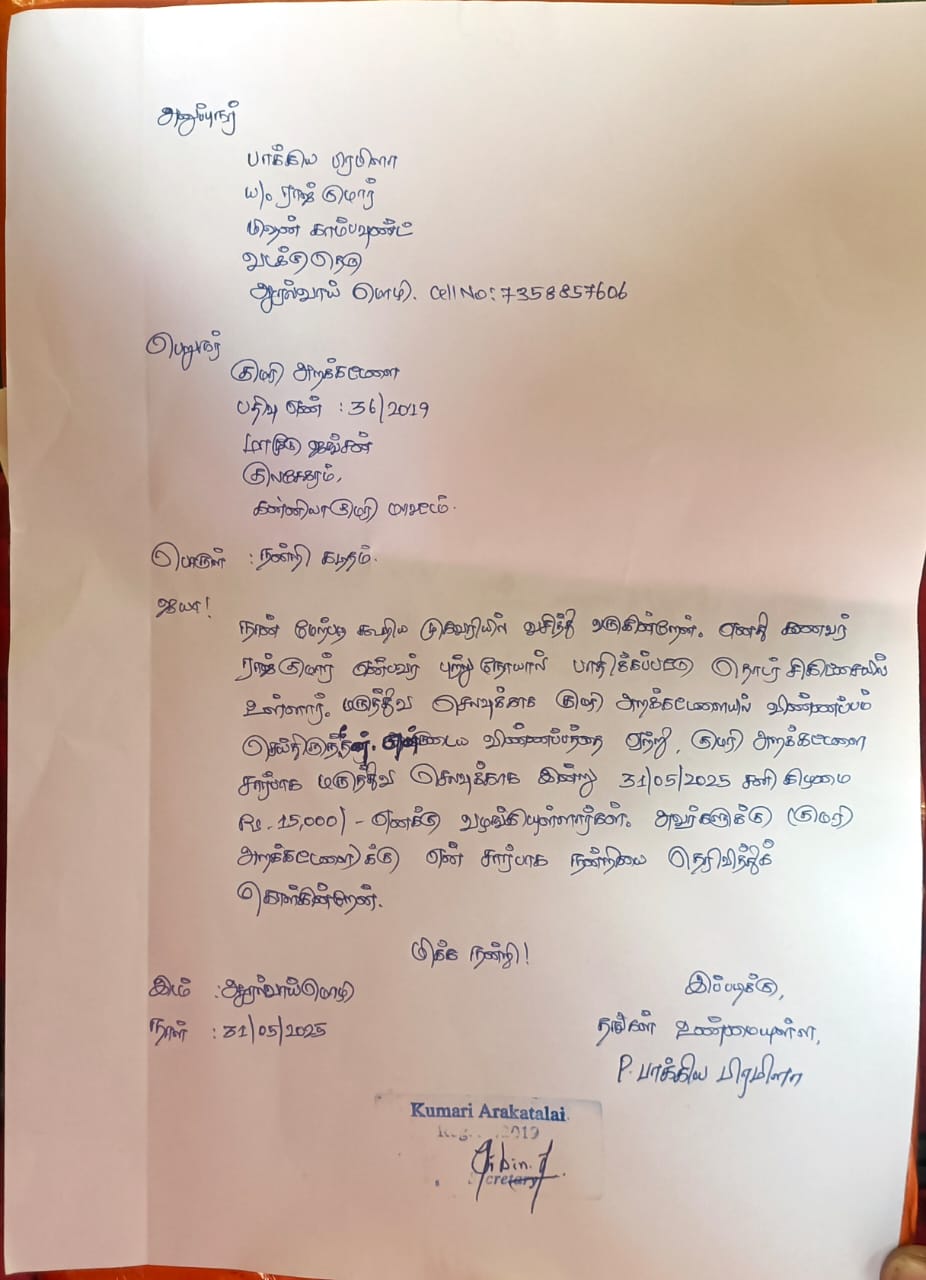 அனுப்புநர்
பாக்கிய பிரமிளா
w/o ராஜ்குமார்
மிஷன் காம்பவுண்ட்
வடக்குதெரு
ஆரல்வாய் மொழி. Cell No: 7358857606
பெறுநர்
குமரி அறக்கட்டளை
பதிவு எண் : 36/2019
ஜங்சன்
குலசேகரம்,
கன்னியாகுமரி மாவட்டம்.
பொருள் : நன்றி கடிதம்.
ஐயா!
நான் மேற்படி கூறிய முகவரியில் வசித்து வருகின்றேன். எனது கணவர்
ராஜ்குமார் என்பவர் புற்று நோயால் பாதிக்கப்பட்டு தொடர் சிகிச்சையில்
உள்ளார். மருத்துவ செலவுக்காக குமரி அறக்கட்டளையில் விண்ணப்பம்
செய்திருந்தேன். என்னுடைய விண்ணப்பத்தை ஏற்று, குமரி அறக்கட்டளை
சார்பாக மருத்துவ செலவுக்காக இன்று 31/05/2025 சனி கிழமை
Rs. 15,000/- எனக்கு வழங்கியுள்ளார்கள். அவர்களுக்கு (குமரி
அறக்கட்டளை)க்கு என் சார்பாக நன்றியை தெரிவித்துக்
கொள்கின்றேன்.
மிக்க நன்றி!
இடம் : ஆரல்வாய்மொழி
இப்படிக்கு,
நாள் : 31/05/2025
தங்கள் உண்மையுள்ள,
P. பாக்கிய பிரமிளா
Kumari Arakatalai
2019
Jibin. J
Secretary